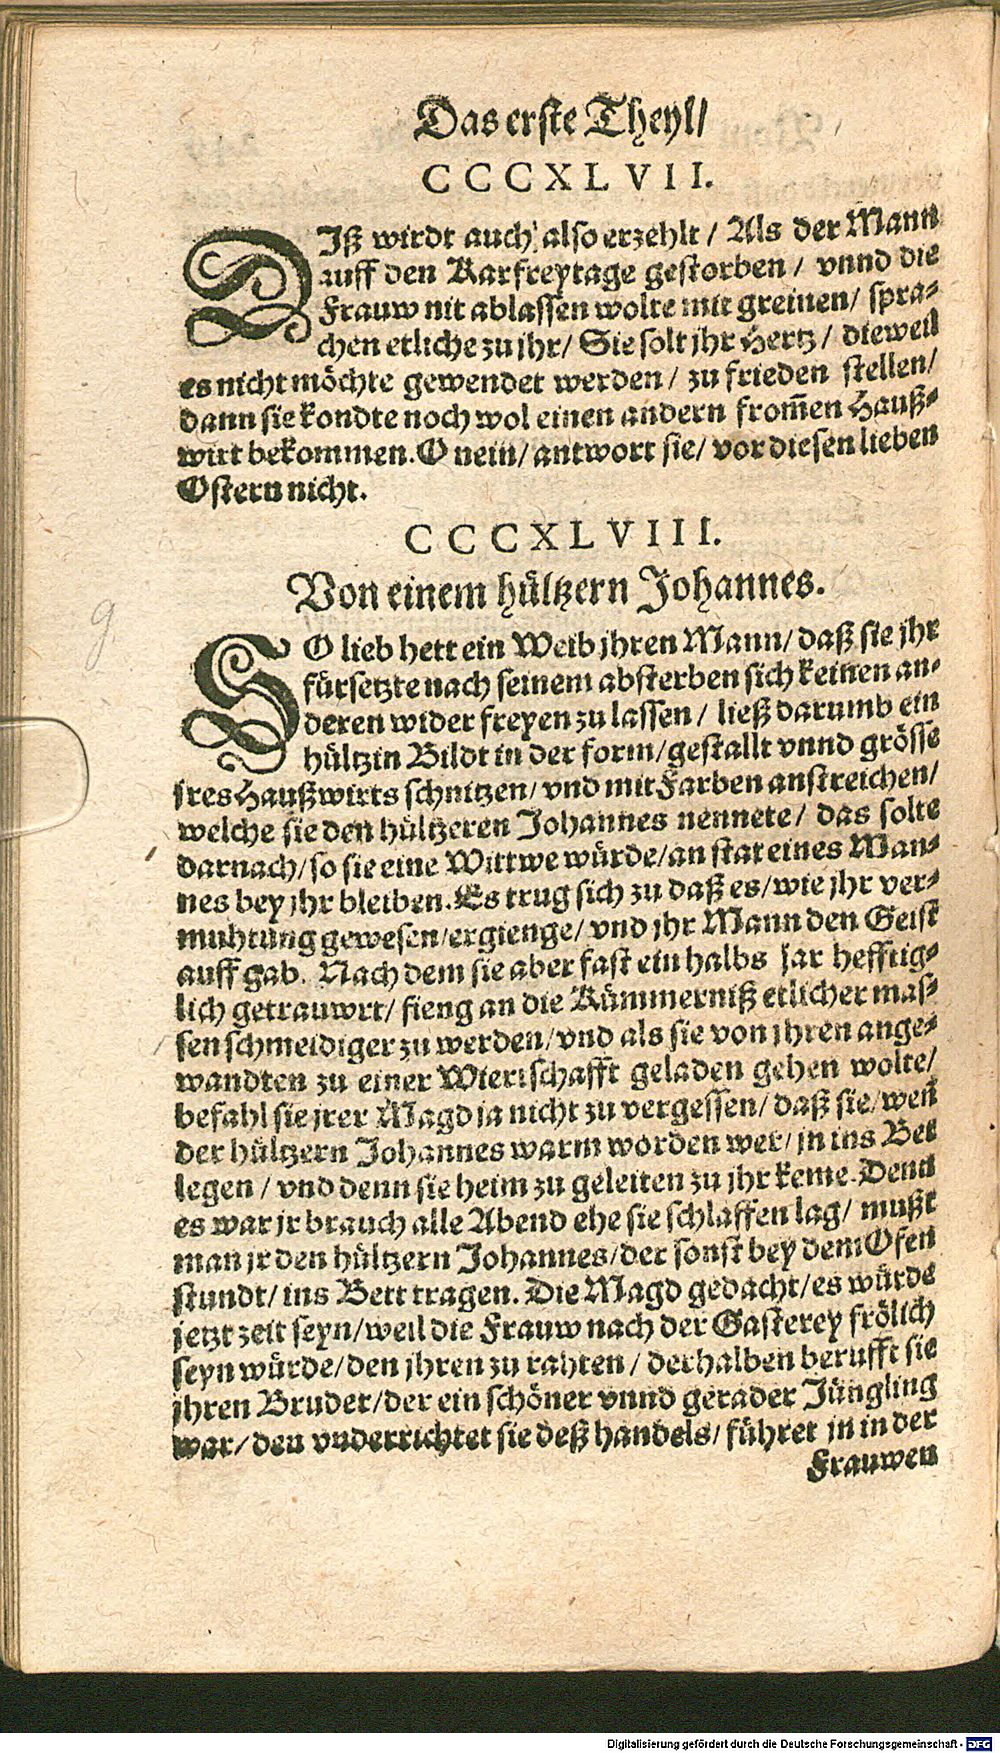 Das erste Theyl/
CCCXLVII.
DIß wirdt auch also erzehlt / Als der Mann
auff den Karfreytage gestorben / vnnd die
Frauw nit ablassen wolte mit greinen/ spra-
chen etliche zu jhr/ Sie solt jhr Hertz / dieweil
es nicht möchte gewendet werden / zu frieden stellen/
dann sie kondte noch wol einen andern from̃en Hauß-
wirt bekommen. O nein/ antwort sie/ vor diesen lieben
Ostern nicht.
CCCXLVIII.
Von einem hültzern Johannes.
SO lieb hett ein Weib jhren Mann/ daß sie jhr
fürsetzte nach seinem absterben sich keinen an-
deren wider freyen zu lassen / ließ darumb ein
hültzin Bildt in der form/ gestallt vnnd grösse
jres Haußwirts schnitzen/ vnd mit Farben anstreichen/
welche sie den hültzeren Johannes nennete/ das solte
darnach/ so sie eine Wittwe würde/ an stat eines Man-
nes bey jhr bleiben. Es trug sich zu daß es/ wie jhr ver-
muhtung gewesen/ ergienge/ vnd jhr Mann den Geist
auff gab. Nach dem sie aber fast ein halbs jar hefftig-
lich getrauwrt/ fieng an die Kümmerniß etlicher mas-
sen schmeidiger zu werden/ vnd als sie von jhren ange-
wandten zu einer Wiertschafft geladen gehen wolte/
befahl sie jrer Magd ja nicht zu vergessen/ daß sie/ weñ
der hültzern Johannes warm worden wer/ jn ins Bet
legen / vnd denn sie heim zu geleiten zu jhr keme. Denn
es war jr brauch alle Abend ehe sie schlaffen lag/ mußt
man jr den hültzern Johannes/ der sonst bey dem Ofen
stundt/ ins Bett tragen. Die Magd gedacht/ es würde
jetzt zeit seyn/ weil die Frauw nach der Gasterey frölich
seyn würde/ den jhren zu rahten / derhalben berufft sie
jhren Bruder/ der ein schöner vnnd gerader Jüngling
war/ den vnderrichtet sie deß handels/ führet jn in der
Frauwen
g
Digitalisierung gefördert durch die Deutsche Forschungsgemeinschaft - DFG